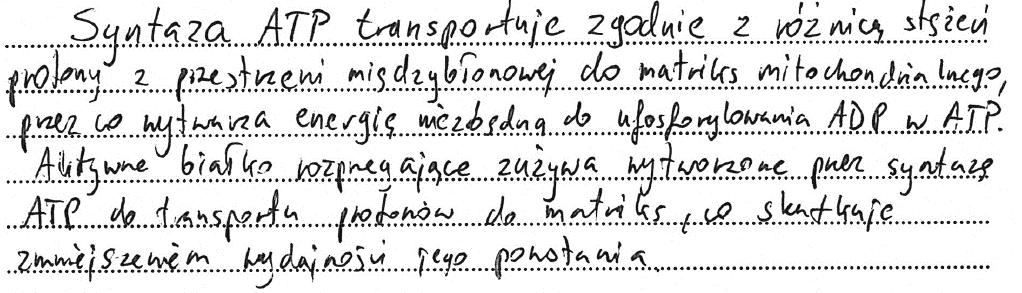 Syntaza ATP transportuje zgodnie z różnicą stężeń
protony z przestrzeni międzybłonowej do matriks mitochondrialnego,
przez co wytwarza energię niezbędną do ufosforylowania ADP w ATP.
Aktywne białko rozpręgające zużywa wytworzone przez syntazę
ATP do transportu protonów do matriks, co skutkuje
zmniejszeniem wydajności jego powstania.